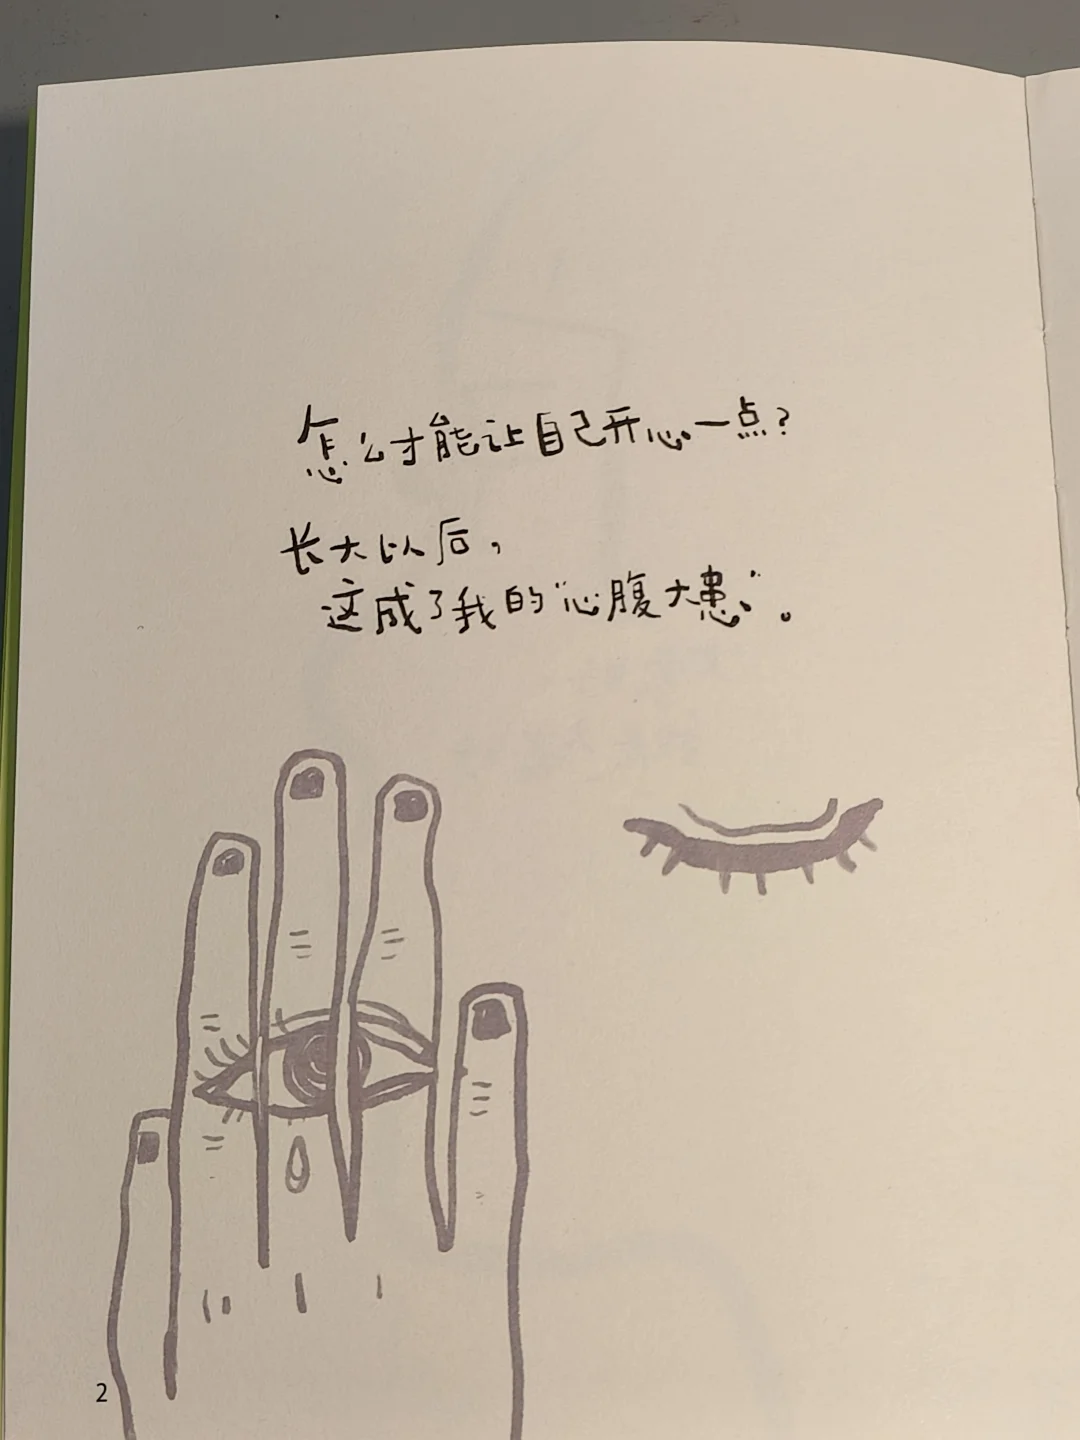 怎么才能让自己开心一点?
长大以后，
这成了我的"心腹大患"。
2